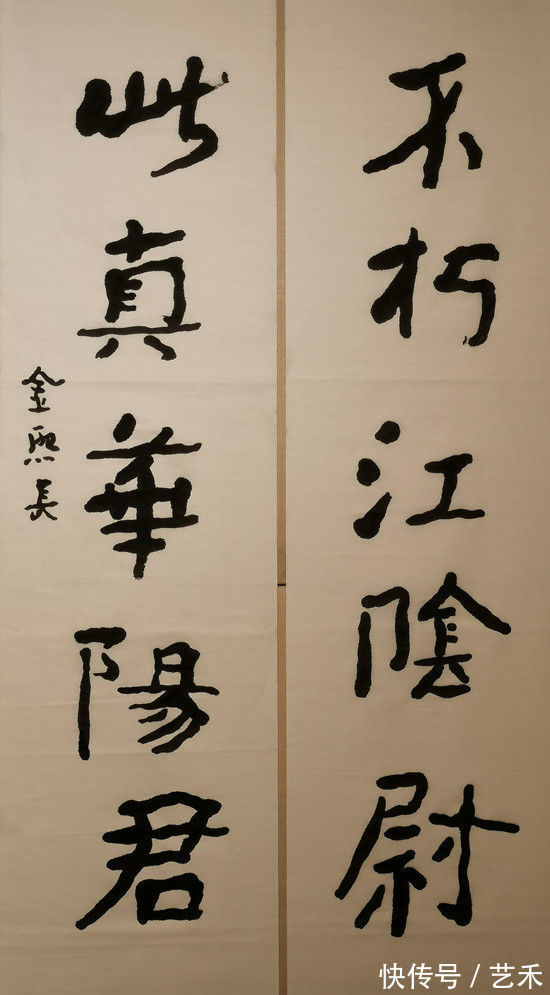 不朽江陰尉
此真華陽君
金熙長
快传号／艺禾